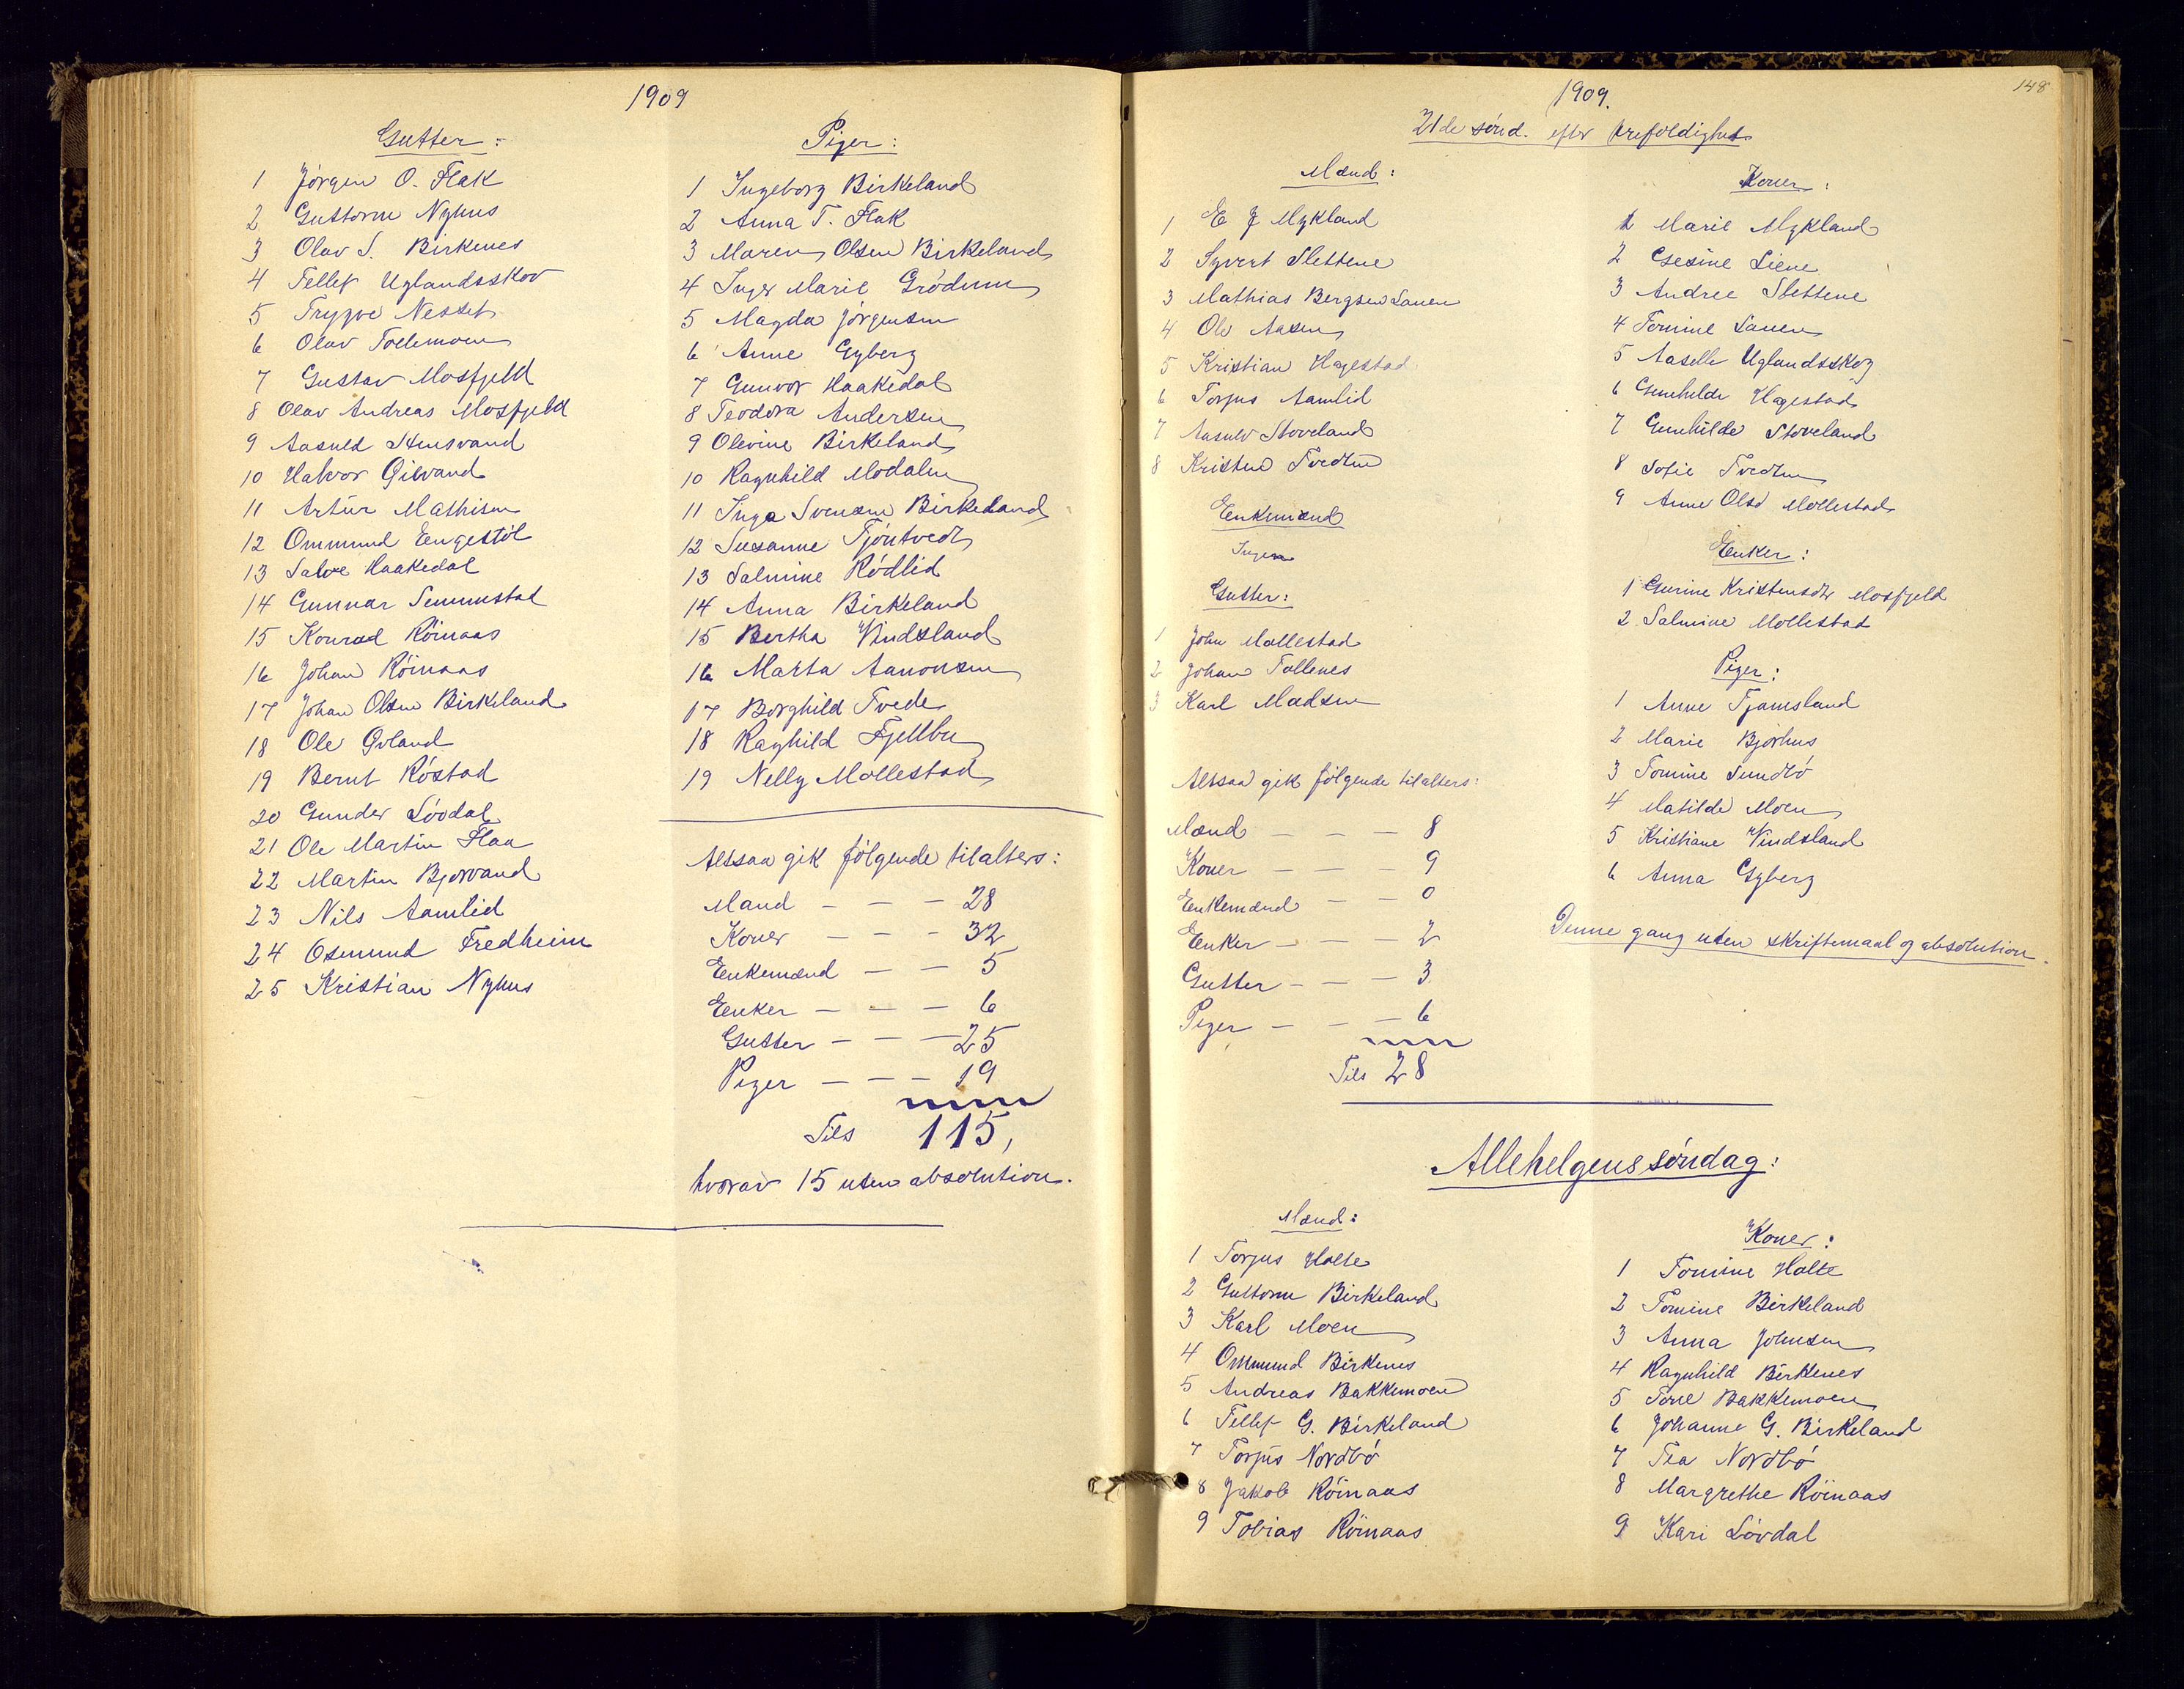 1909
Gutter:
1 Jörgen O. Flak
2 Guttorm Nyhus
3 Olav S. Birkenes
4 Tellef Uglandsskov
5 Trygve Nesset
6 Olav Tollemoen
7 Gustav Mosfjeld
8 Olav Andreas Mosfjeld
9 Aasuld Stensvand
10 Halvor Gilvand
11 Artur Mathisen
12 Ommund Engestöl
13 Salve Haakedal
14 Gunnar Senumstad
15 Konrad Röinaas
16 Johan Röinaas
17 Johan Olsen Birkeland
18 Ole Övland
19 Bernt Röstad
20 Gunder Lövdal
21 Ole Martin Flaa
22 Martin Bjorvand
23 Nils Aamlid
24 Osmund Fredheim
25 Kristian Nyhus
Piger:
1 Ingeborg Birkeland
2 Anna T. Flak
3 Maren Olsen Birkeland
4 Inger Marie Grödum
5 Magda Jörgensen
6 Anne Gyberg
7 Gunvor Haakedal
8 Teodora Andersen
9 Olevine Birkeland
10 Ragnhild Modalen
11 Inga Svensen Birkeland
12 Susanne Tjöntvedt
13 Salmine Rödlid
14 Anna Birkeland
15 Bertha Vindsland
16 Marta Aanonsen
17 Borghild Tvede
18 Raghild Fjellbu
19 Nelly Mollestad
Altsaa gik fölgende tilalters:
Mænd - - - 28
Koner - - - 32
Enkemænd - - 5
Enker - - - 6
Gutter - - - 25
Piger - - - 19
Tils 115,
hvorav 15 uten absolution.
148
1909.
21de sönd. efter trefoldighet
Mænd:
1 E J Mykland
2 Syvert Slettene
3 Mathias Bergsen Lauen
4 Ole Aasen
5 Kristian Hagestad
6 Torjus Aamlid
7 Aasulv Stoveland
8 Kristen Tvedten
Enkemænd
Ingen
Gutter:
1 John Mollestad
2 Johan Tollenes
3 Karl Madsen
Altsaa gik fölgende tilalters:
Mænd - - - 8
Koner - - - 9
Enkemænd - - 0
Enker - - - 2
Gutter - - - 3
Piger - - - 6
Tils 28
Koner:
1 Marie Mykland
2 Gesine Liene
3 Andree Slettene
4 Tomine Lauen
5 Aaselle Uglandsskog
6 Gunhilde Hagestad
7 Gunhilde Stoveland
8 Sofie Tvedten
9 Anne Olsd Mollestad
Enker:
1 Gurine Kristensdtr Mosfjeld
2 Salmine Mollestad
Piger:
1 Anne Tjamsland
2 Marie Bjorhus
3 Tomine Sundbö
4 Matilde Moen
5 Kristiane Vindsland
6 Anna Gyberg
Denne gang uten skriftemaal og absolution.
Allehelgenssöndag:
Mænd:
1 Torjus Holte
2 Guttorm Birkeland
3 Karl Moen
4 Ommund Birkenes
5 Andreas Bakkemoen
6 Tellef G. Birkeland
7 Torjus Nordbö
8 Jakob Röinaas
9 Tobias Röinaas
Koner:
1 Tomine Holte
2 Tomine Birkeland
3 Anna Johnsen
4 Ragnhild Birkenes
5 Torel Bakkemoen
6 Johanne G. Birkeland
7 Tea Nordbö
8 Margrethe Röinaas
9 Kari Lövdal